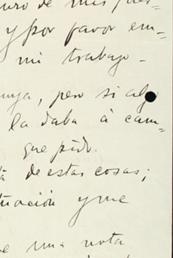 uro de mis pa
y por favor em-
mi trabajo-
nya, pero si algo
la daba á cam-
que pido.
de estas cosas;
tuación y me
e una nota